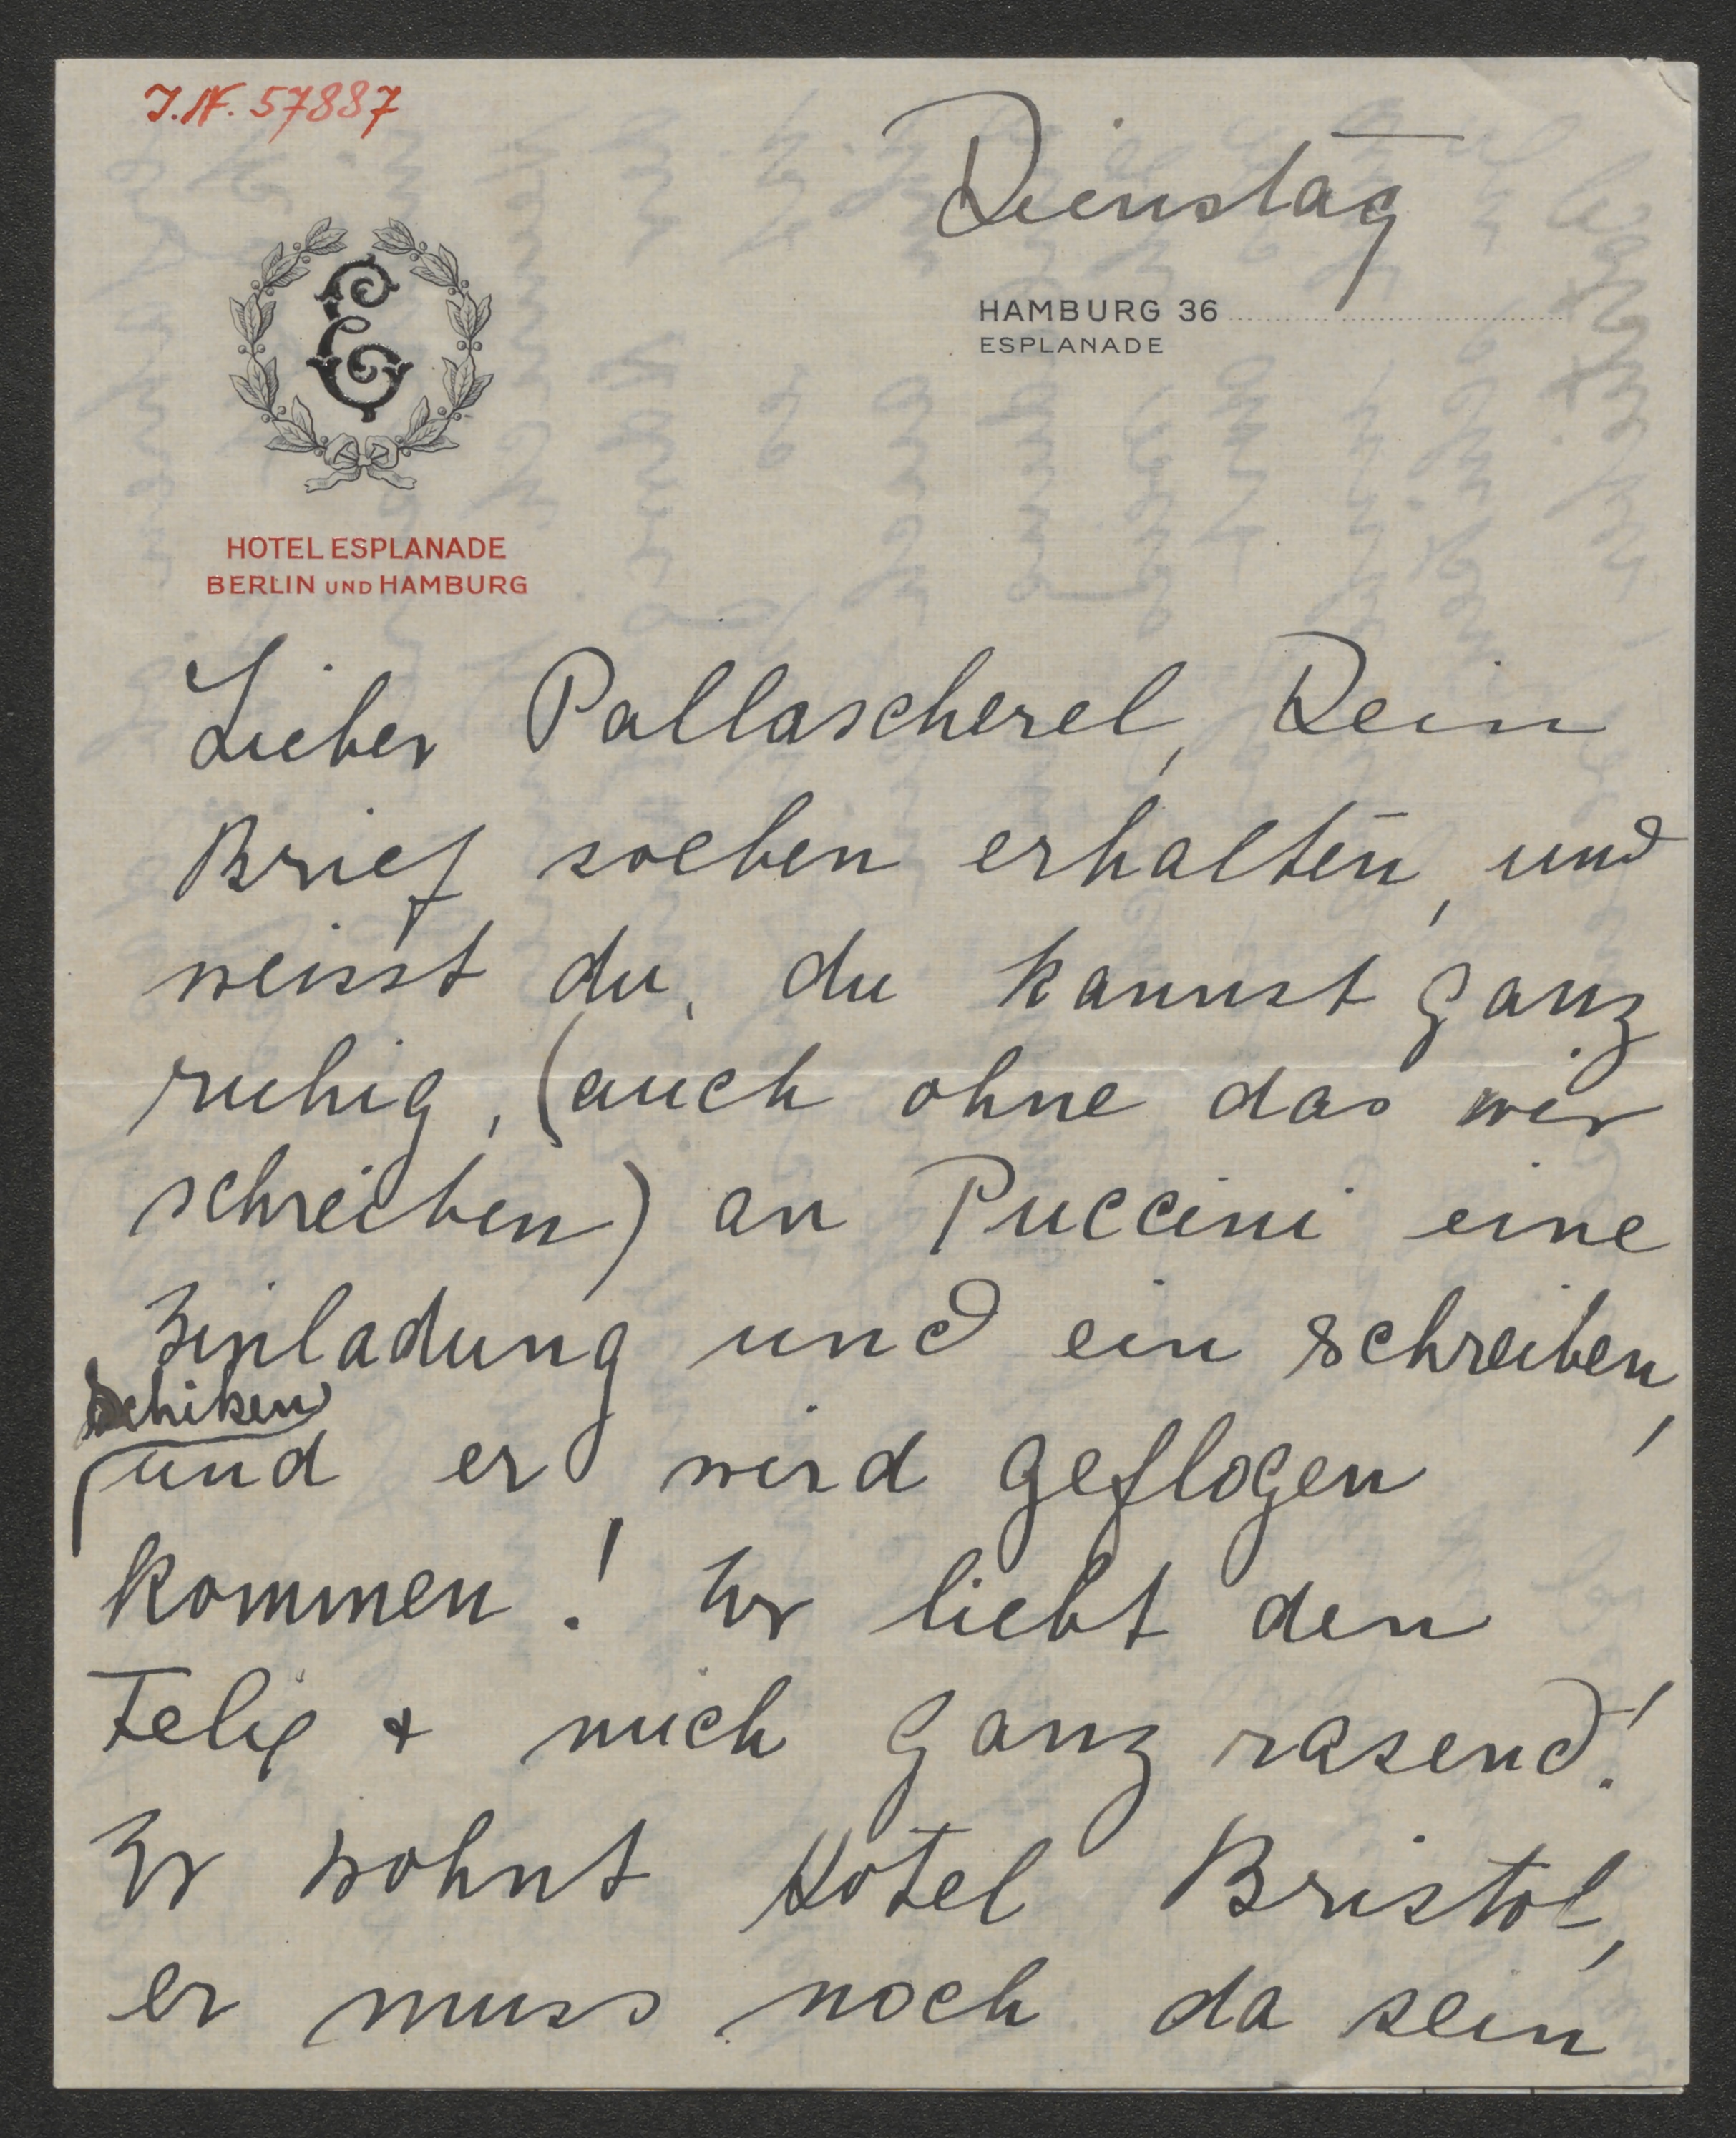 J.N. 57887
Dienstag
HAMBURG 36
ESPLANADE
E
HOTEL ESPLANADE
BERLIN UND HAMBURG
Lieber Pallascherel, Dein
Brief soeben erhalten, und
weisst du, du kannst ganz
ruhig, (auch ohne das wir
schreiben) an Puccini eine
Einladung und ein schreiben,
schiken
und er wird geflogen
kommen! Er liebt den
Felix + mich ganz rasend!
Er wohnt Hotel Bristol,
er muss noch da sein